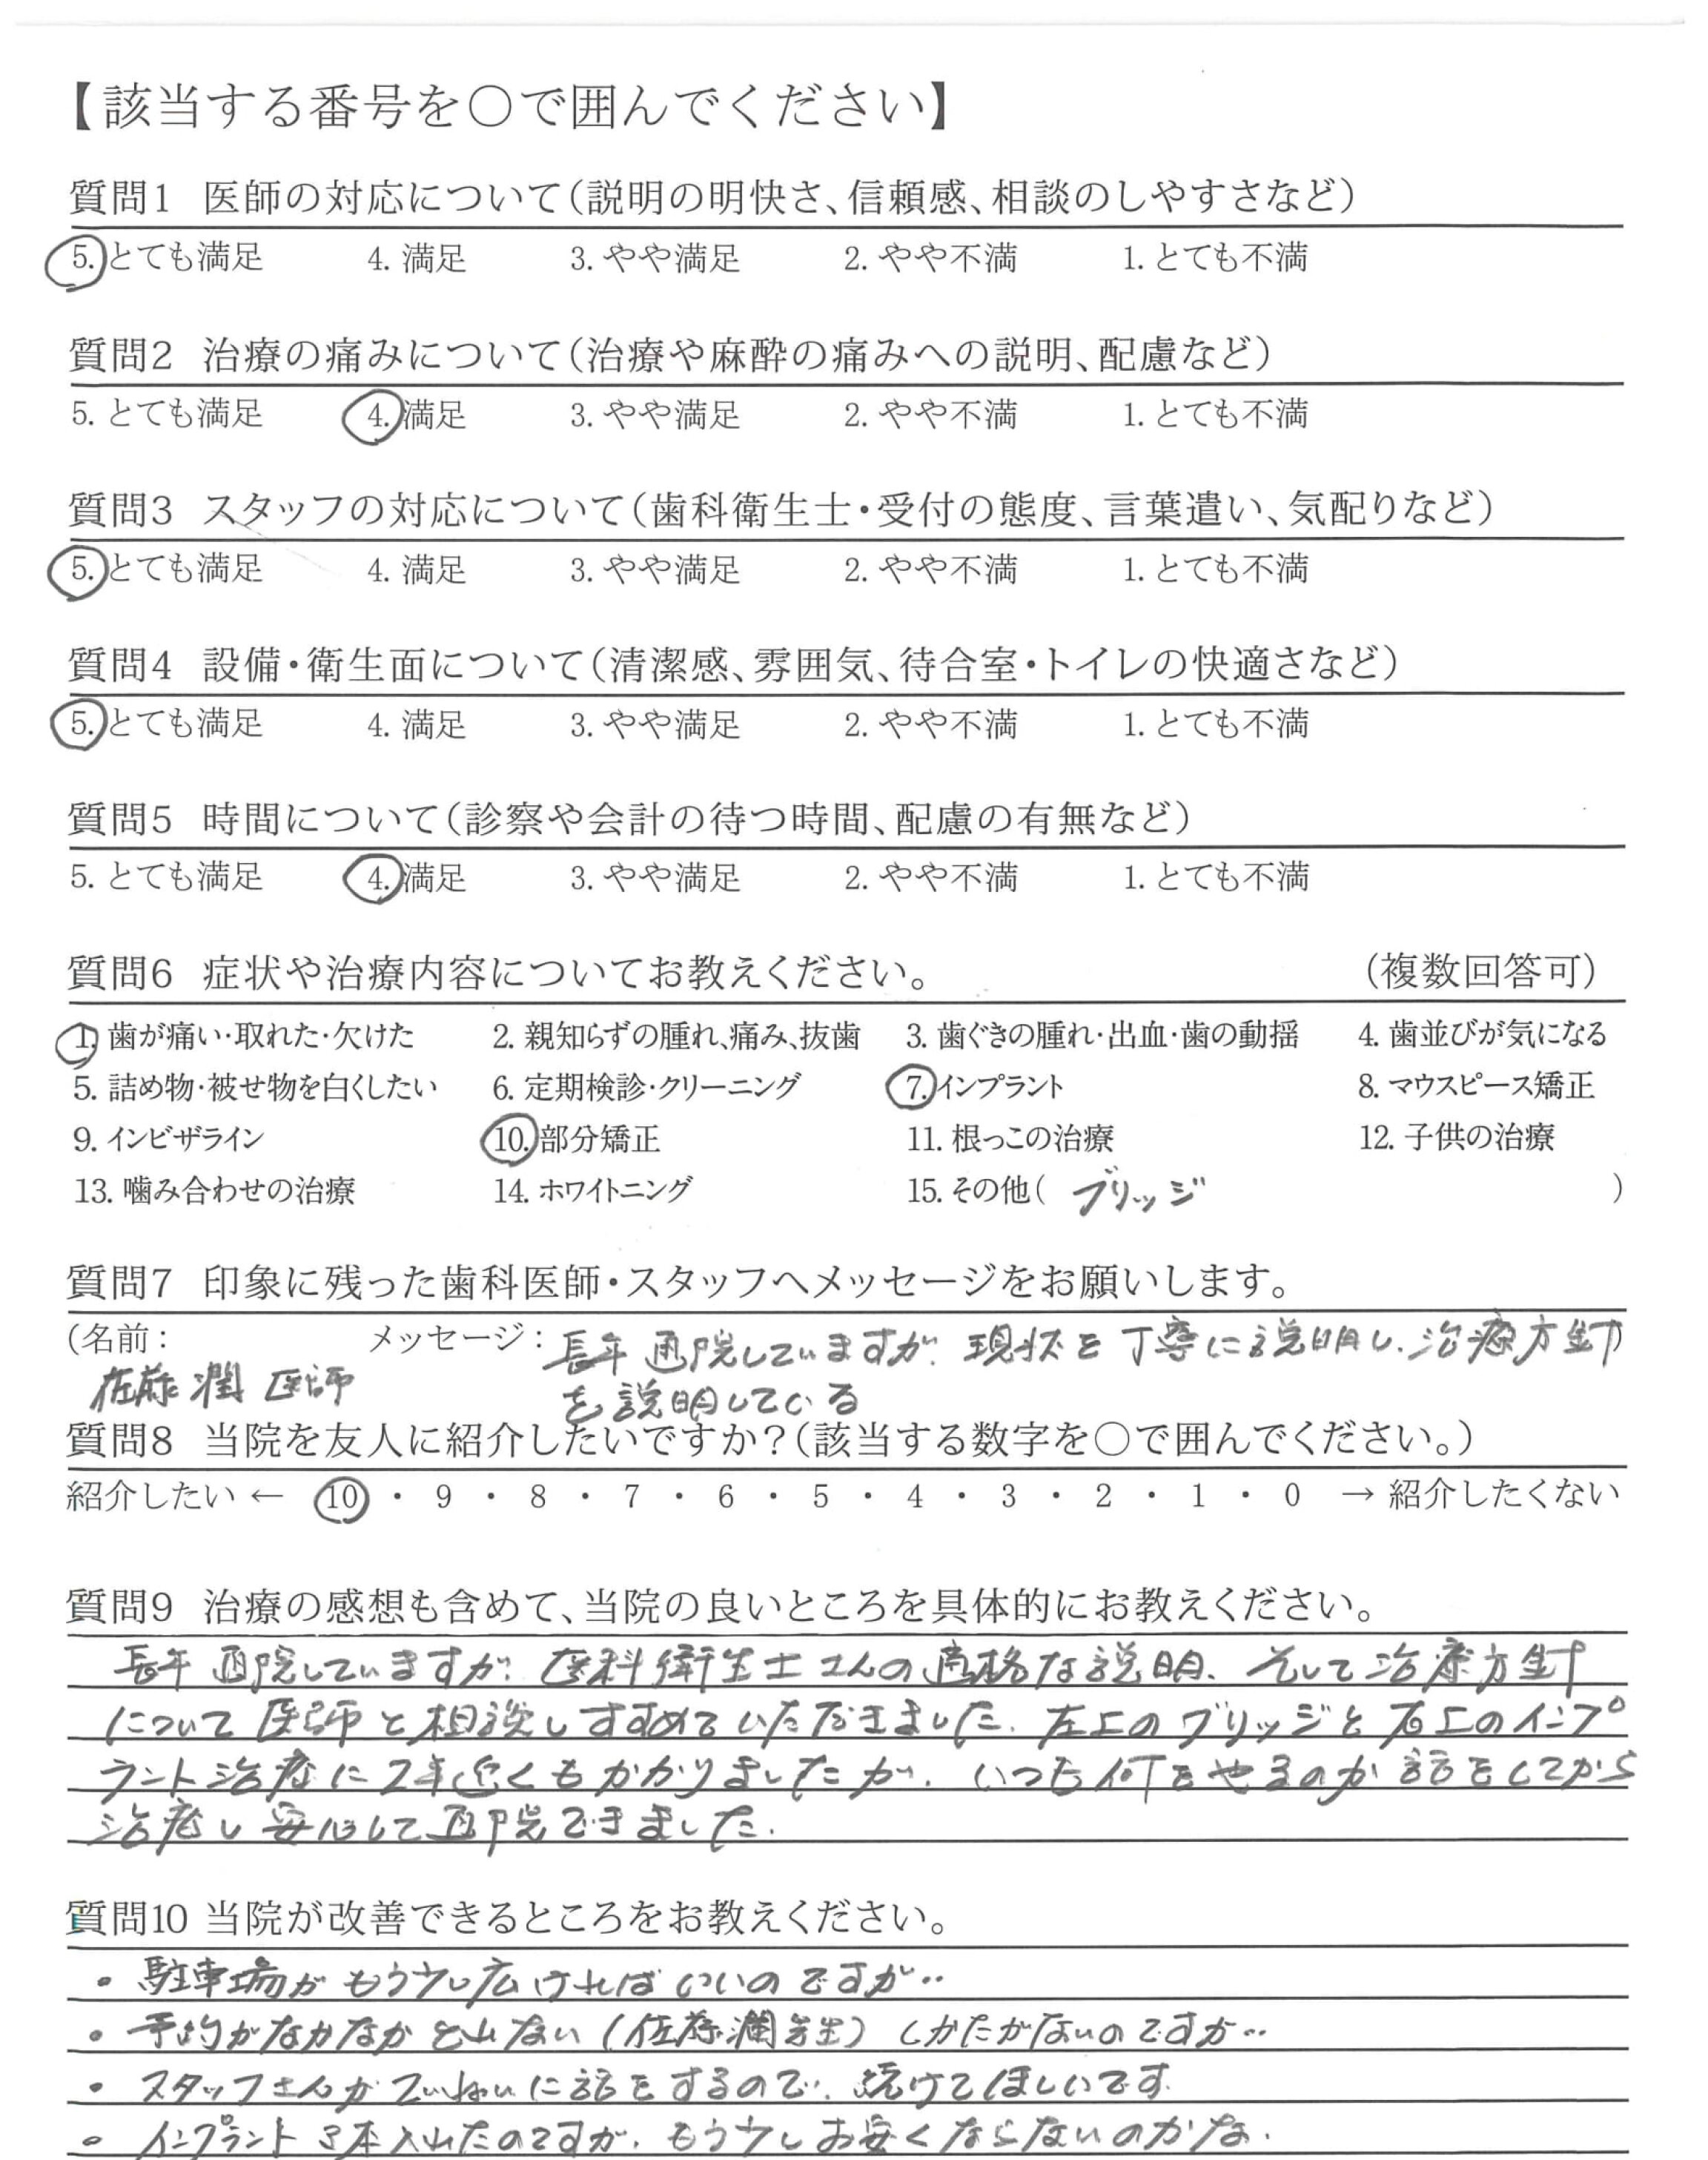 【該当する番号を〇で囲んでください】
質問1 医師の対応について(説明の明快さ、信頼感、相談のしやすさなど)
5. とても満足 4. 満足 3. やや満足 2. やや不満 1. とても不満
質問2 治療の痛みについて(治療や麻酔の痛みへの説明、配慮など)
5. とても満足 4. 満足 3. やや満足 2. やや不満 1. とても不満
質問3 スタッフの対応について(歯科衛生士・受付の態度、言葉遣い、気配りなど)
5. とても満足 4. 満足 3. やや満足 2. やや不満 1. とても不満
質問4 設備・衛生面について(清潔感、雰囲気、待合室・トイレの快適さなど)
5. とても満足 4. 満足 3. やや満足 2. やや不満 1. とても不満
質問5 時間について(診察や会計の待つ時間、配慮の有無など)
5. とても満足 4. 満足 3. やや満足 2. やや不満 1. とても不満
質問6 症状や治療内容についてお教えください。 (複数回答可)
1. 歯が痛い・取れた・欠けた 2. 親知らずの腫れ、痛み、抜歯 3. 歯ぐきの腫れ・出血・歯の動揺 4. 歯並びが気になる
5. 詰め物・被せ物を白くしたい 6. 定期検診・クリーニング 7. インプラント 8. マウスピース矯正
9. インビザライン 10. 部分矯正 11. 根っこの治療 12. 子供の治療
13. 噛み合わせの治療 14. ホワイトニング 15. その他( ブリッジ )
質問7 印象に残った歯科医師・スタッフへメッセージをお願いします。
(名前: メッセージ: 長年通院していますが、現状を丁寧に説明し、治療方針)
佐藤潤 医師 を説明している
質問8 当院を友人に紹介したいですか?(該当する数字を〇で囲んでください。)
紹介したい ← 10 ・ 9 ・ 8 ・ 7 ・ 6 ・ 5 ・ 4 ・ 3 ・ 2 ・ 1 ・ 0 → 紹介したくない
質問9 治療の感想も含めて、当院の良いところを具体的にお教えください。
長年通院していますが、医科衛生士さんの適格な説明、そして治療方針
について医師と相談しすすめていただきました。左上のブリッジと右上のインプ
ラント治療に2年近くもかかりましたが、いつも何をやるのか話をしてから
治療し安心して通院できました。
質問10 当院が改善できるところをお教えください。
・駐車場がもう少し広ければいいのですが‥
・予約がなかなかとれない(佐藤潤先生)しかたがないのですが‥
・スタッフさんがていねいに話をするので、続けてほしいです
・インプラント3本入れたのですが、もう少しお安くならないのかな。